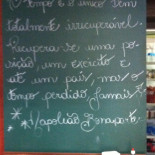 O tempo é o único bem
totalmente irrecuperável.
Recupera-se uma po-
sição, um exército e
até um país, mas o
tempo perdido, jamais.
* Napoleão Bonaparte